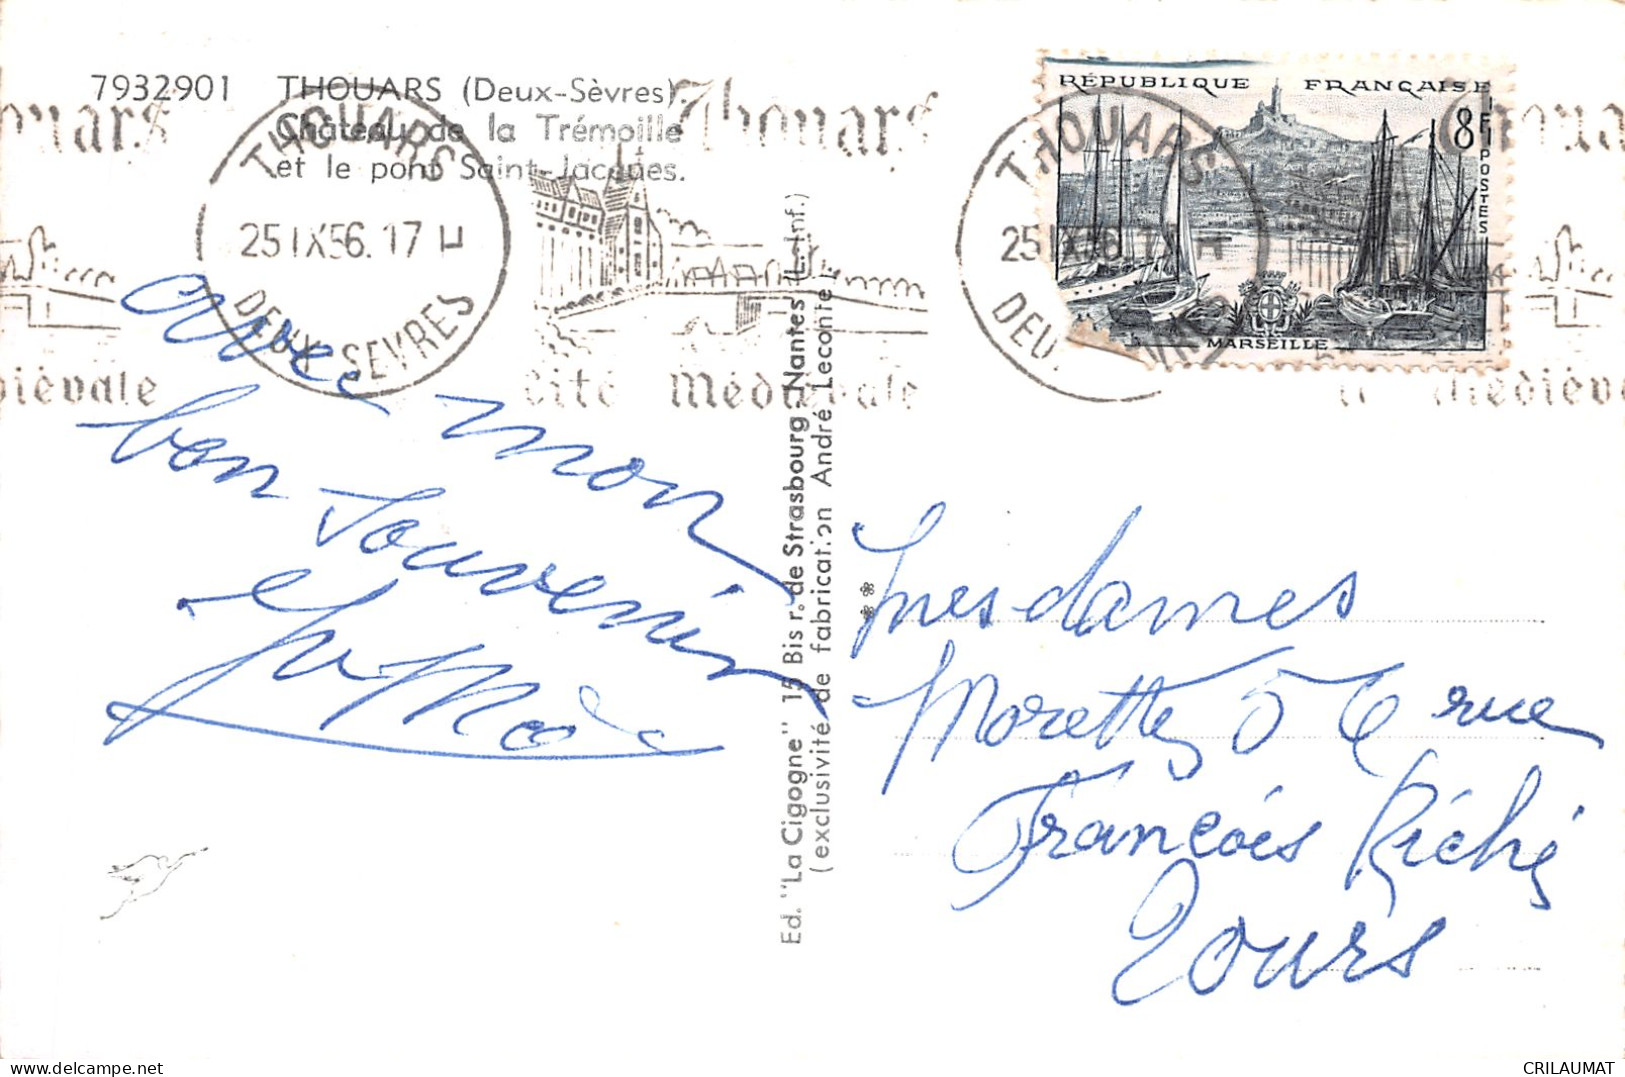 7932901 THOUARS (Deux-Sèvres)
Château de la Trémoille
et le pont Saint-Jacques.
THOUARS
25 IX 56. 17 H
DEUX-SEVRES
Thouars
Cité Médiévale
RÉPUBLIQUE FRANÇAISE
8F
POSTES
MARSEILLE
THOUARS
25 IX 56 17 H
DEUX SEVRES
Avec mon
bon souvenir
Ed. "La Cigogne" 15 Bis r. de Strasbourg, Nantes (L.-Inf.)
(exclusivité de fabrication André Leconte)
Mesdames
Morette 56 rue
François Riché
Tours
CRILAUMAT